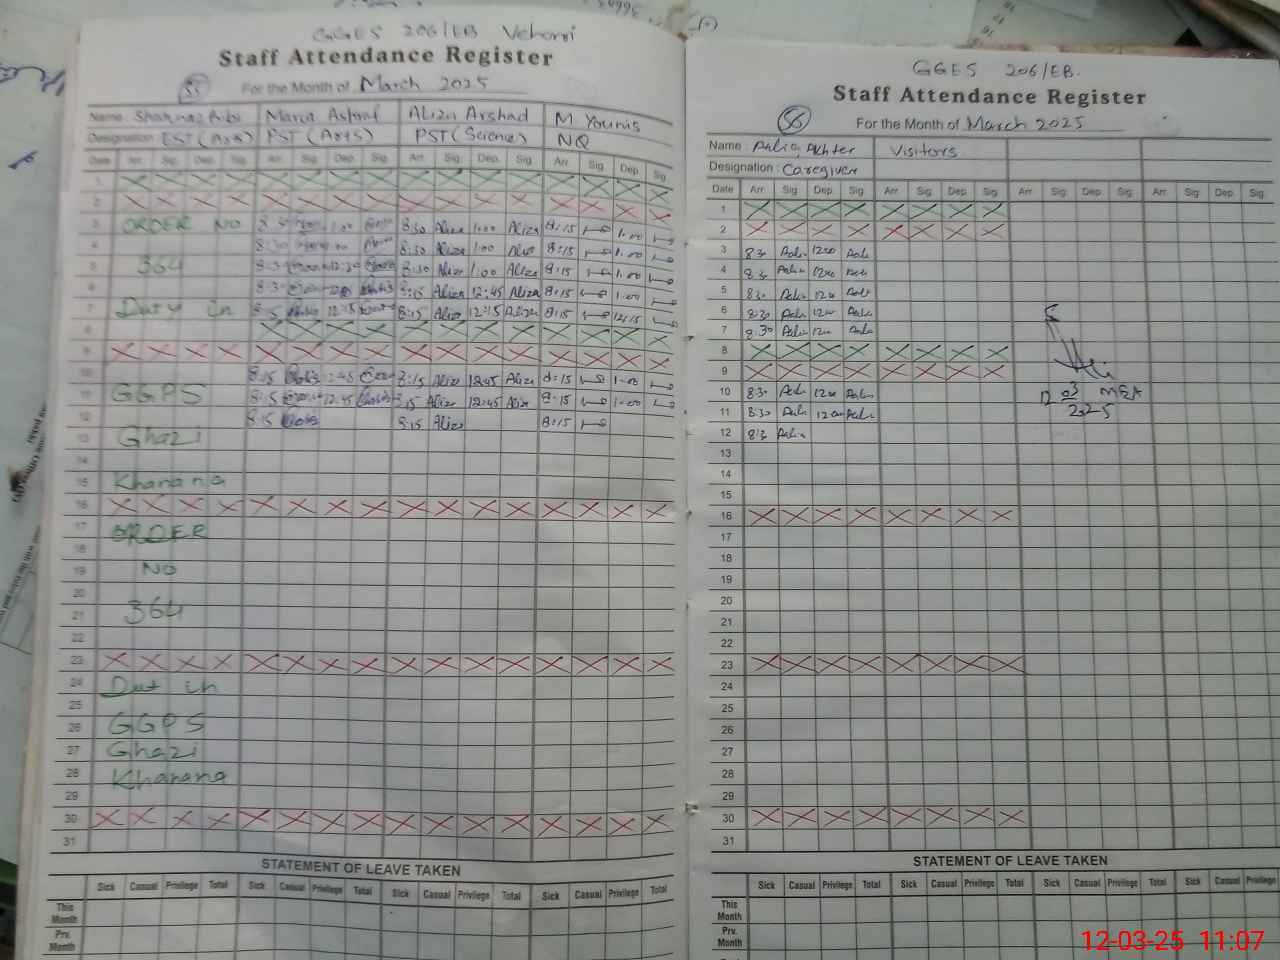 GGES 206/EB Vehari
Staff Attendance Register
55 For the Month of March 2025
Name Maria Ashraf Aliza Arshad M. Younis
Designation EST (Arts) PST (Arts) PST (Science) NQ
Date Arr. Sig. Dep. Sig. Arr. Sig. Dep. Sig. Arr. Sig. Dep. Sig. Arr. Sig. Dep. Sig.
1
2
3 ORDER NO 1:00 8:30 Aliza 1:00 Aliza 8:15 1:00
4 8:30 8:30 Aliza 1:00 8:15 1:00
5 364 8:30 12:30 8:30 Aliza 1:00 Aliza 8:15 1:00
6 8:30 8:15 Aliza 12:45 Aliza 8:15 1:00
7 Duty in 12:15 8:15 Aliza 12:15 Aliza 8:15 12:15
8
9
10 8:15 12:45 8:15 Aliza 12:45 Aliza 8:15 1:00
11 GGPS 8:15 12:45 8:15 Aliza 12:45 Aliza 8:15 1:00
12 8:15 8:15 Aliza 8:15
13 Ghazi
14
15 Khanana
16
17 ORDER
18
19 NO
20
21 364
22
23
24 Dut in
25
26 GGPS
27 Ghazi
28 Khanana
29
30
31
STATEMENT OF LEAVE TAKEN
Sick Casual Privilege Total Sick Casual Privilege Total Sick Casual Privilege Total Sick Casual Privilege Total
This Month
Prv. Month
GGES 206/EB.
Staff Attendance Register
56 For the Month of March 2025
Name : Akhter Visitors
Designation: Caregiver
Date Arr. Sig. Dep. Sig. Arr. Sig. Dep. Sig. Arr. Sig. Dep. Sig. Arr. Sig. Dep. Sig.
1
2
3 8:30 12:00
4 8:30 12:00
5 8:30 12:00
6 8:30 12:00
7 8:30 12:00
8
9
10 8:30 12:00
11 8:30 12:00
12 8:30
12 03 MEA
2025
13
14
15
16
17
18
19
20
21
22
23
24
25
26
27
28
29
30
31
STATEMENT OF LEAVE TAKEN
Sick Casual Privilege Total Sick Casual Privilege Total Sick Casual Privilege Total Sick Casual Privilege
This Month
Prv. Month
12-03-25 11:07